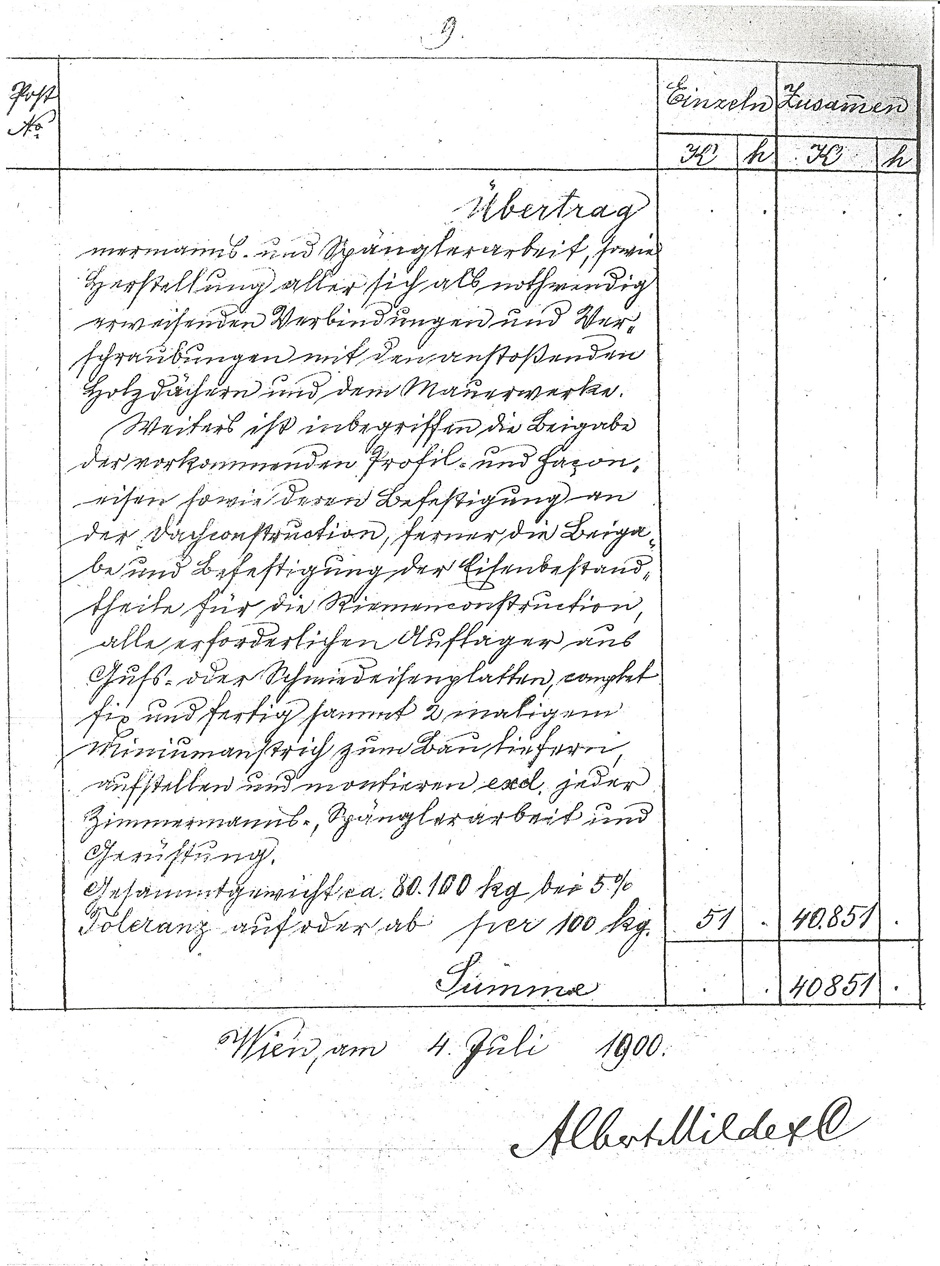 9.
Post Einzeln Zusam̄en
No.
K h K h
Übertrag . . . .
mermanns- und Spänglerarbeit, sowie
Herstellung aller sich als nothwendig
erweisenden Verbindungen und Ver-
schraubungen mit den anstoßenden
Holzdächern und dem Mauerwerke.
Weiters ist inbegriffen die Beigabe
der vorkommenden Profil- und Façon-
eisen sowie deren Befestigung an
der Dachconstruction, ferner die Beiga-
be und Befestigung der Eisenbestand-
theile für die Riemenconstruction,
alle erforderlichen Auflager aus
Gufs- oder Schmiedeisenplatten, complet
fix und fertig sammt 2 maligem
Miniumanstrich zum Bau liefern,
aufstellen und montieren excl. jeder
Zimmermanns-, Spänglerarbeit und
Gerüstung.
Gesammtgewicht ca. 80.100 kg bei 5%
Toleranz auf oder ab per 100 kg. 51 . 40.851 .
Summe . . 40851 .
Wien, am 4. Juli 1900.
Albert Milde & C